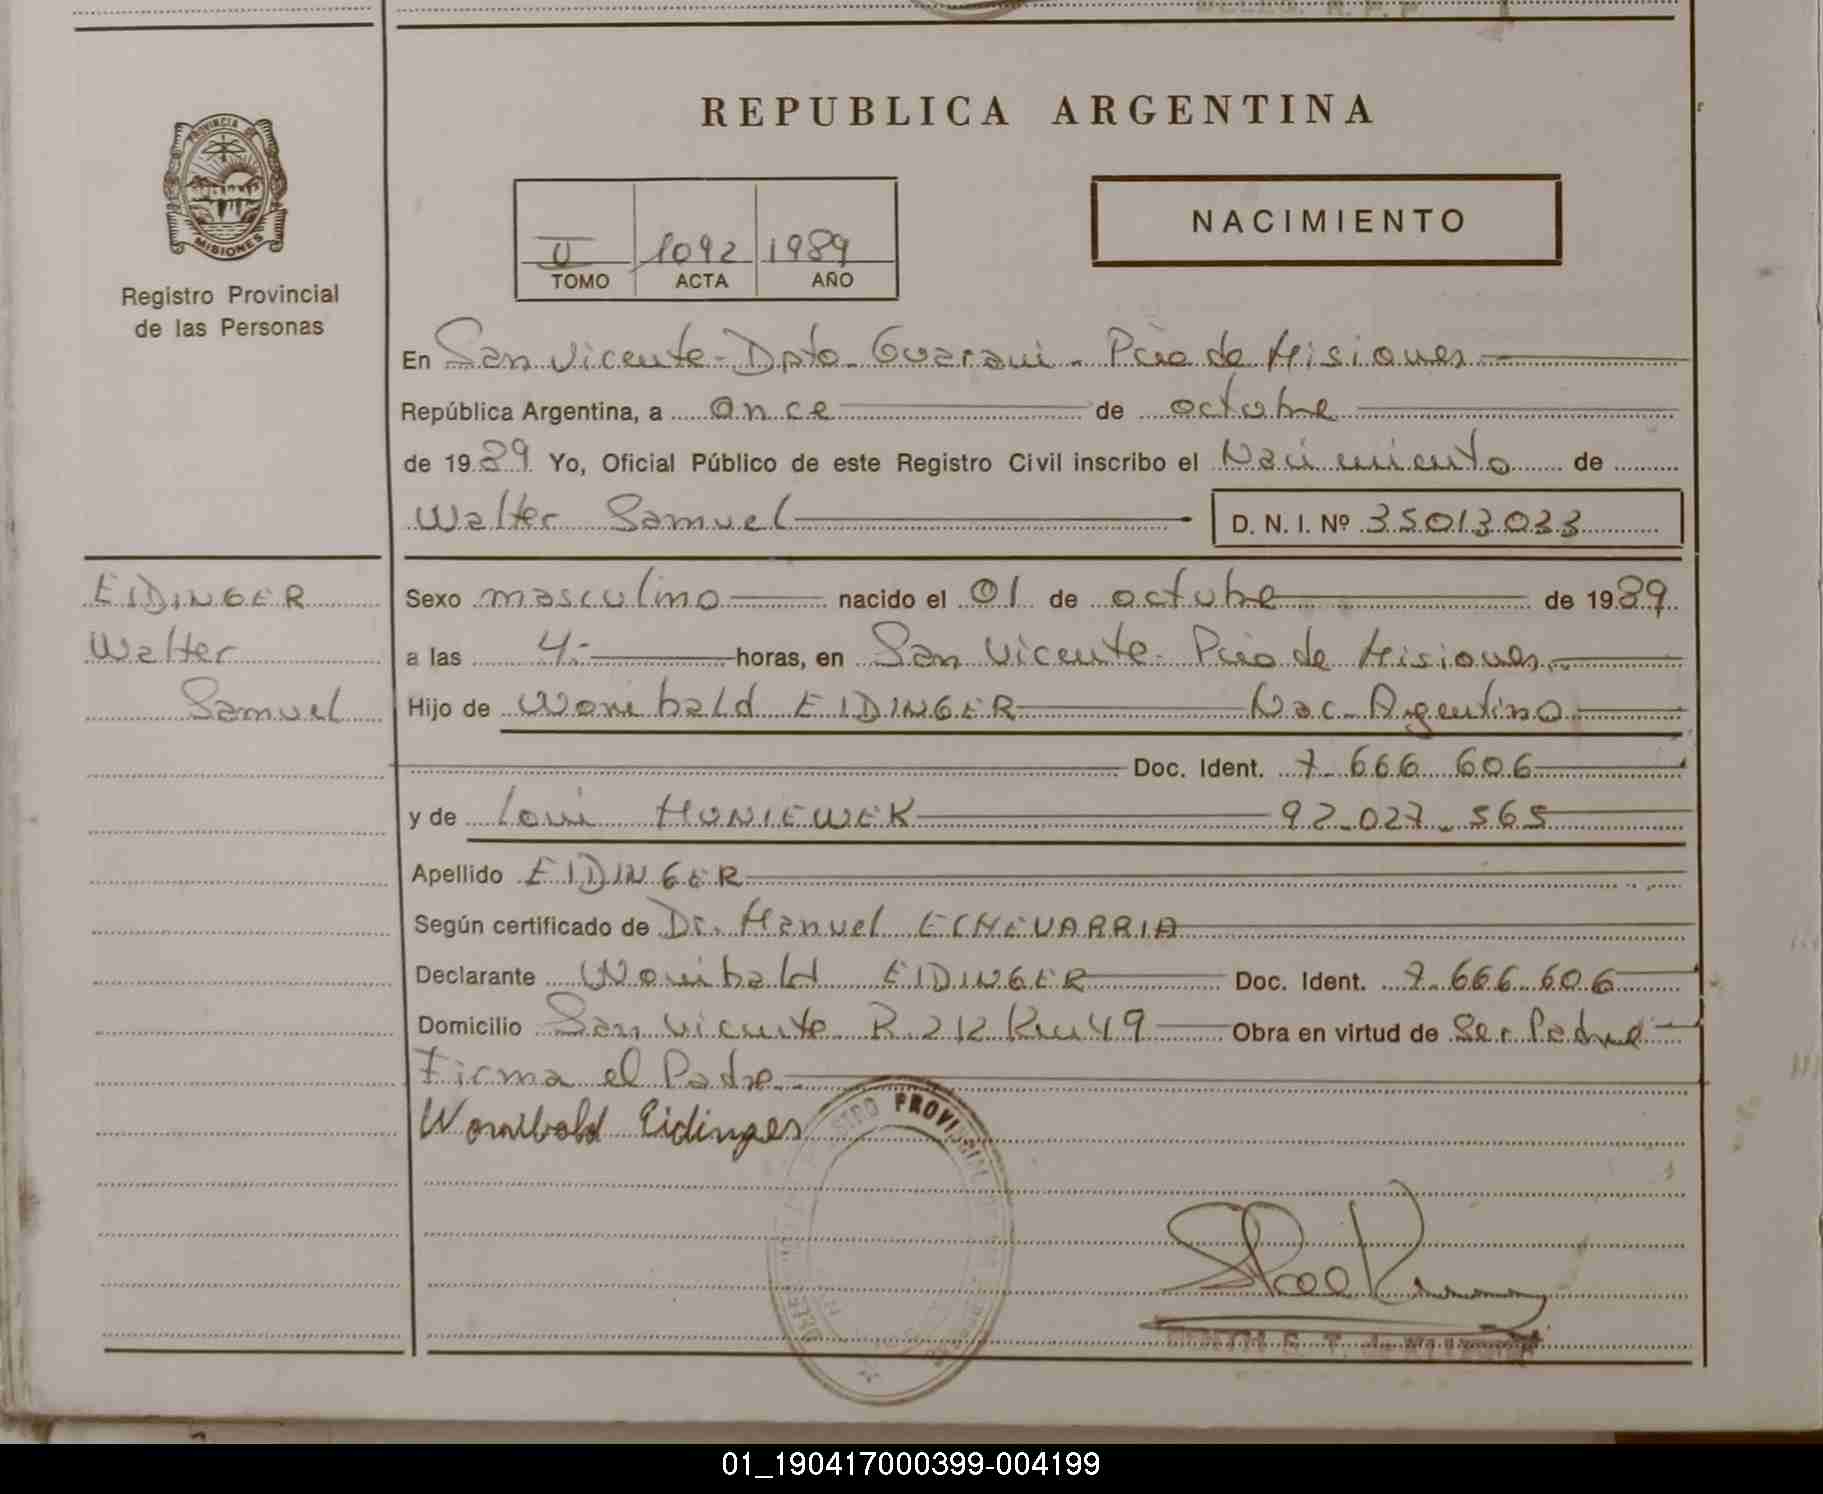 REPUBLICA ARGENTINA
PROVINCIA DE
MISIONES
Registro Provincial
de las Personas
II 1092 1989
TOMO ACTA AÑO
NACIMIENTO
En San Vicente - Dpto. Guarani - Pcia de Misiones
República Argentina, a once de octubre
de 1989 Yo, Oficial Público de este Registro Civil inscribo el Nacimiento de
Walter Samuel D. N. I. Nº 35013033
EIDINGER
Walter
Samuel
Sexo masculino nacido el 01 de octubre de 1989
a las 4.- horas, en San Vicente - Pcia de Misiones
Hijo de Wonibald EIDINGER Nac. Argentino
Doc. Ident. 7.666.606
y de Loni HONIEWEK 92.027.565
Apellido EIDINGER
Según certificado de Dr. Manuel ECHEVARRIA
Declarante Wonibald EIDINGER Doc. Ident. 7.666.606
Domicilio San Vicente R. 212 Km 49 Obra en virtud de Ser Padre
Firma el Padre
Wonibald Eidinger
PROVINCIAL
01_190417000399-004199